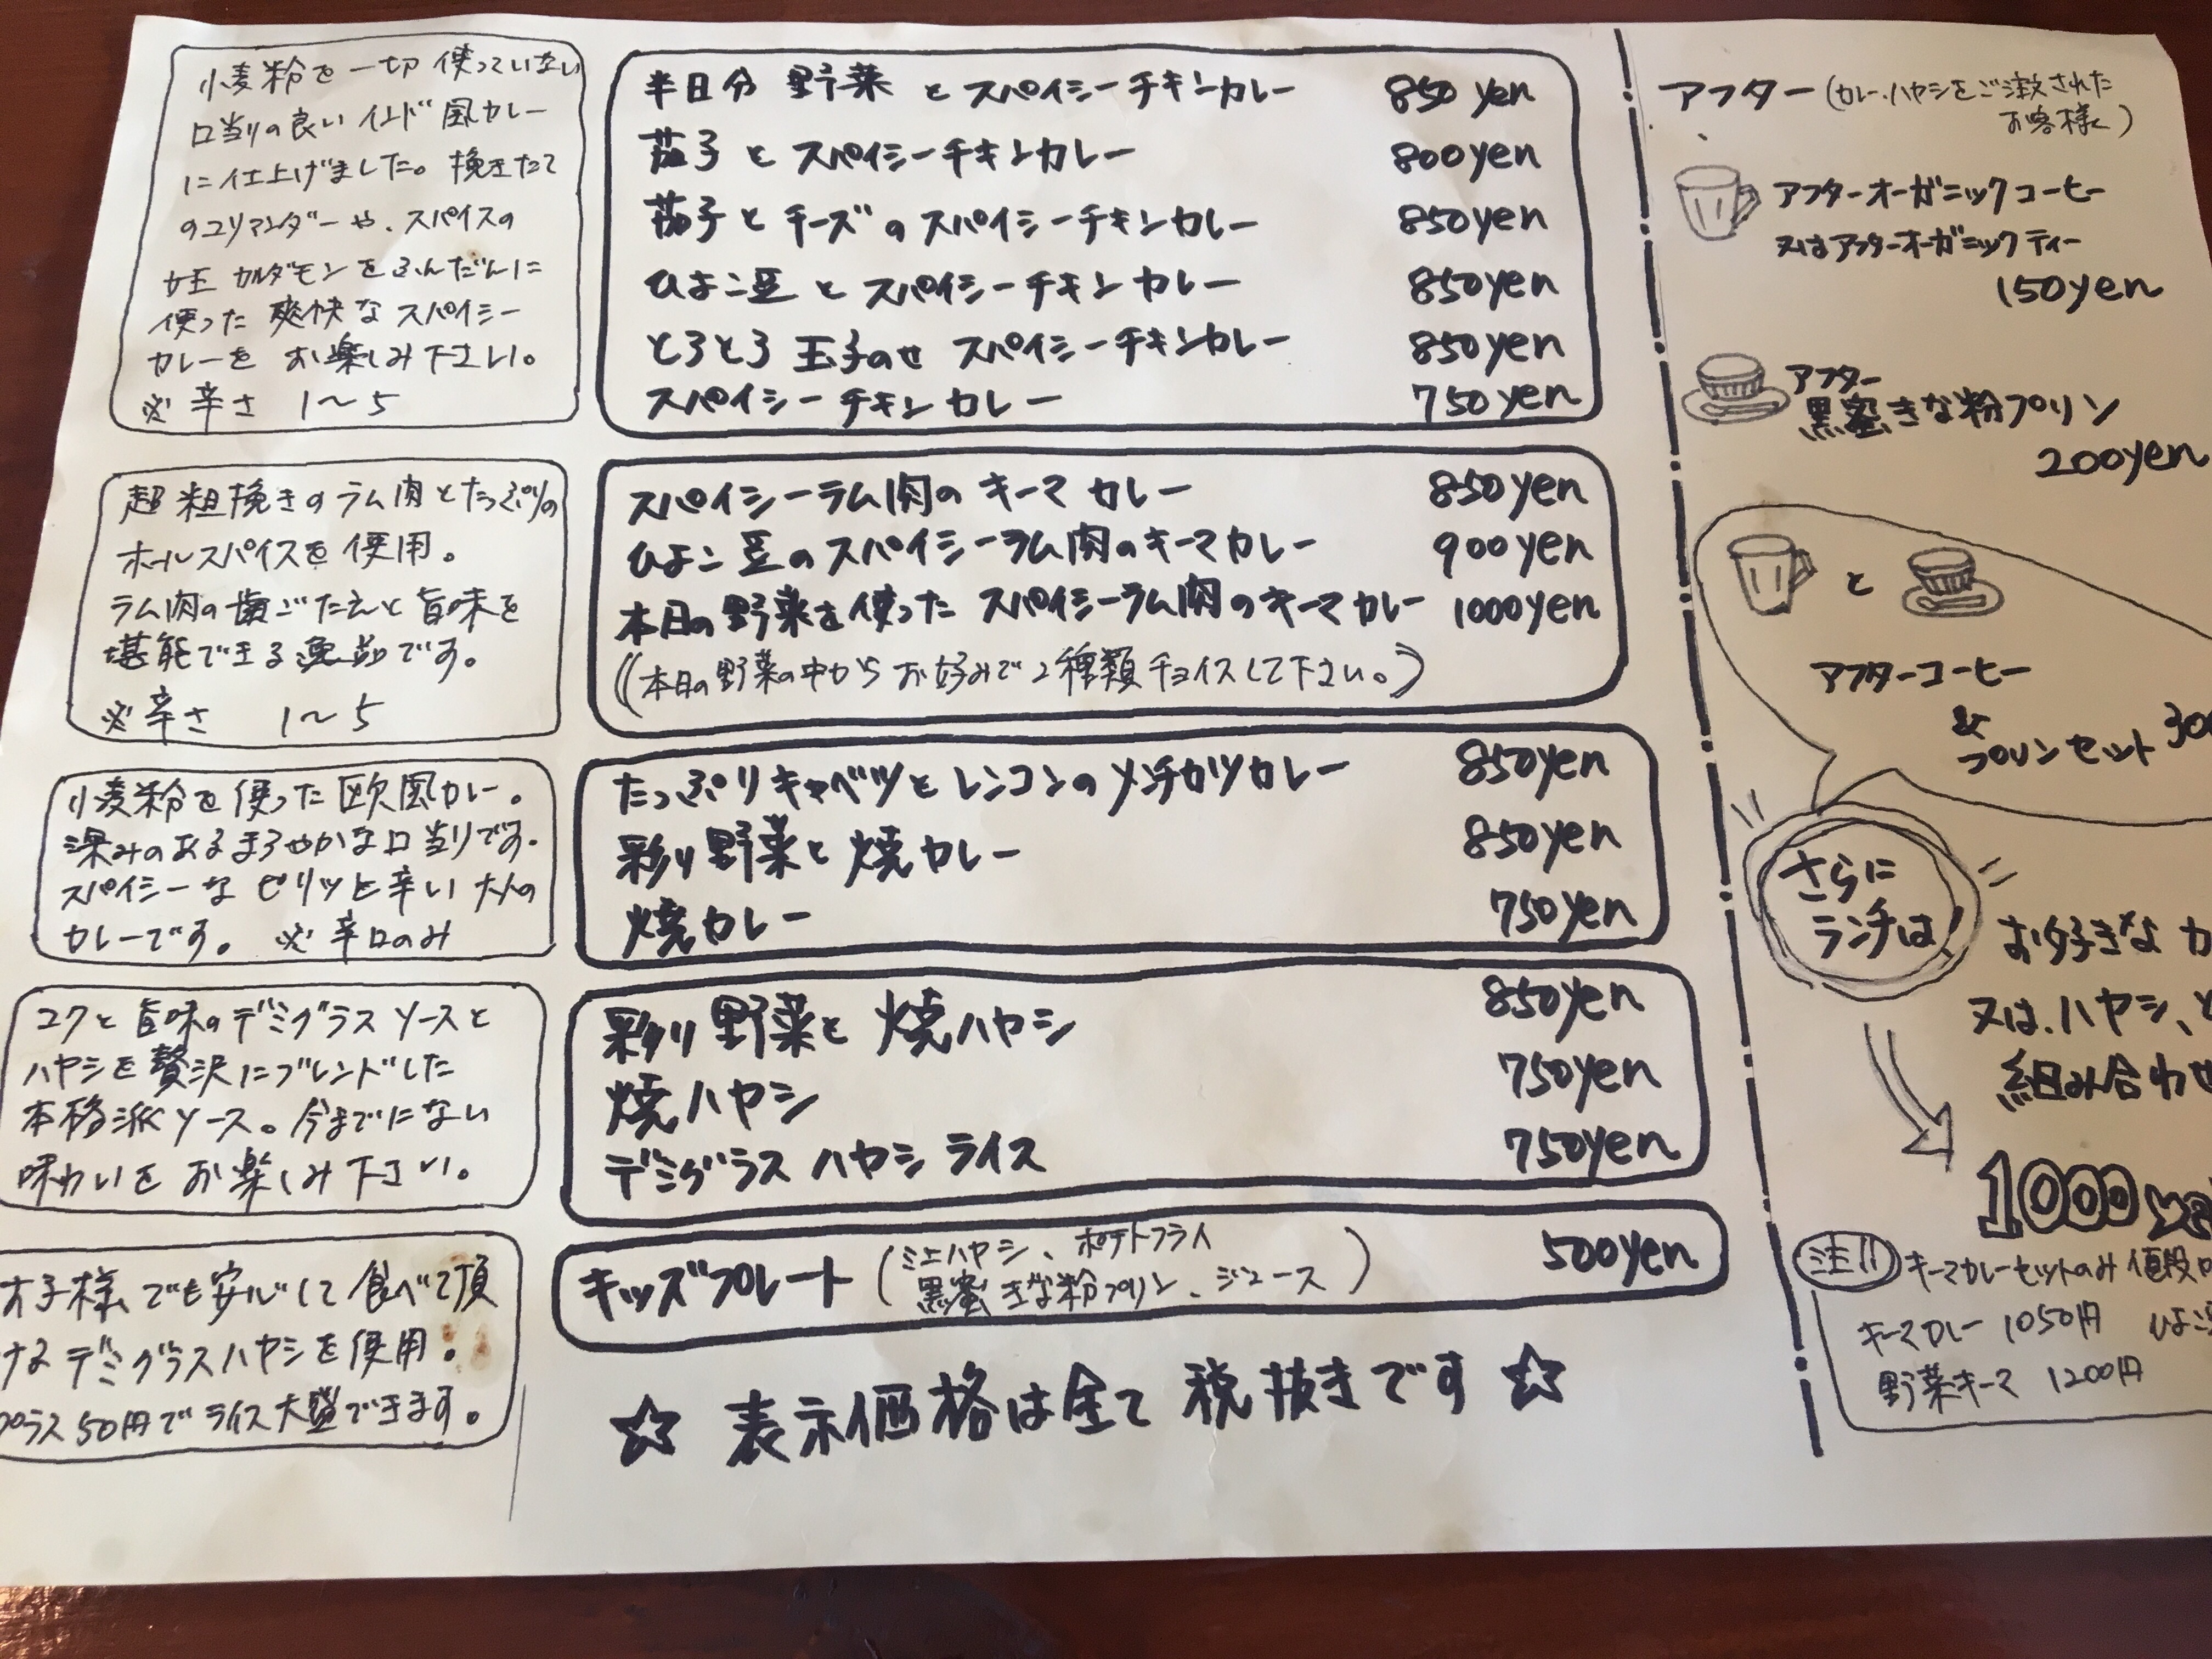 小麦粉を一切使っていない
口当りの良いインド風カレー
に仕上げました。挽きたて
のコリアンダーや、スパイスの
女王カルダモンをふんだんに
使った爽快なスパイシー
カレーをお楽しみ下さい。
※辛さ 1〜5
半日分野菜とスパイシーチキンカレー 850yen
茄子とスパイシーチキンカレー 800yen
茄子とチーズのスパイシーチキンカレー 850yen
ひよこ豆とスパイシーチキンカレー 850yen
とろとろ玉子のせスパイシーチキンカレー 850yen
スパイシーチキンカレー 750yen
超粗挽きのラム肉とたっぷりの
ホールスパイスを使用。
ラム肉の歯ごたえと旨味を
堪能できる逸品です。
※辛さ 1〜5
スパイシーラム肉のキーマカレー 850yen
ひよこ豆のスパイシーラム肉のキーマカレー 900yen
本日の野菜を使ったスパイシーラム肉のキーマカレー 1000yen
((本日の野菜の中からお好みで2種類チョイスして下さい。)
小麦粉を使った欧風カレー。
深みのあるまろやかな口当りです。
スパイシーなピリッと辛い大人の
カレーです。 ※辛口のみ
たっぷりキャベツとレンコンのメンチカツカレー 850yen
彩り野菜と焼カレー 850yen
焼カレー 750yen
コクと旨味のデミグラスソースと
ハヤシを贅沢にブレンドした
本格派ソース。今までにない
味わいをお楽しみ下さい。
彩り野菜と焼ハヤシ 850yen
焼ハヤシ 750yen
デミグラスハヤシライス 750yen
お子様でも安心して食べて頂
けるデミグラスハヤシを使用。
プラス50円でライス大盛できます。
キッズプレート (ミニハヤシ、ポテトフライ 500yen
黒蜜きな粉プリン、ジュース)
☆ 表示価格は全て税抜きです ☆
アフター(カレー、ハヤシをご注文された
お客様)
アフターオーガニックコーヒー
又はアフターオーガニックティー
150yen
アフター
黒蜜きな粉プリン
200yen
と
アフターコーヒー
&
プリンセット 300
さらに
ランチは!
お好きなカ
又は、ハヤシ、と
組み合わせ
1000yen
注!! キーマカレーセットのみ値段
キーマカレー 1050円 ひよこ
野菜キーマ 1200円